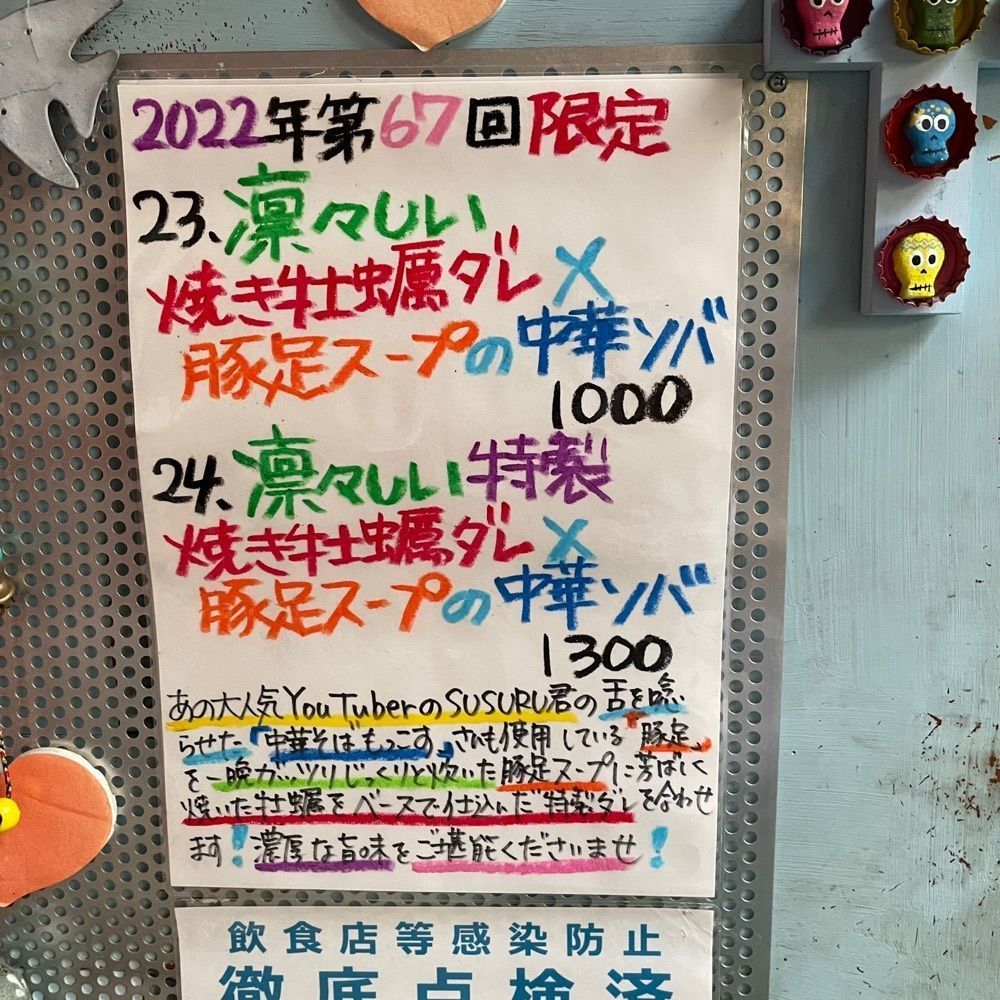 2022年第67回限定
23、凛々しい
焼き牡蠣ダレ×
豚足スープの中華ソバ
1000
24、凛々しい特製
焼き牡蠣ダレ×
豚足スープの中華ソバ
1300
あの大人気YouTuberのSUSURU君の舌を唸
らせた「中華そばもっこす」さんも使用している「豚足」
を一晩ガッツリじっくりと炊いた豚足スープに芳ばしく
焼いた牡蠣をベースで仕込んだ"特製ダレ"を合わせ
ます！濃厚な旨味をご堪能くださいませ！
飲食店等感染防止
徹底点検済